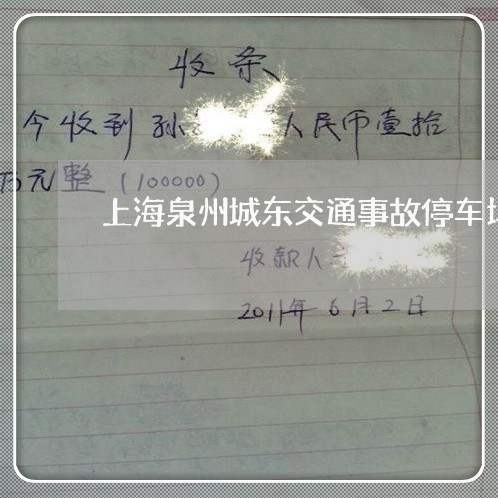 收条
今收到孙 人民币壹拾
万元整(100000)
上海泉州城东交通事故停车场
收款人
2011年6月2日